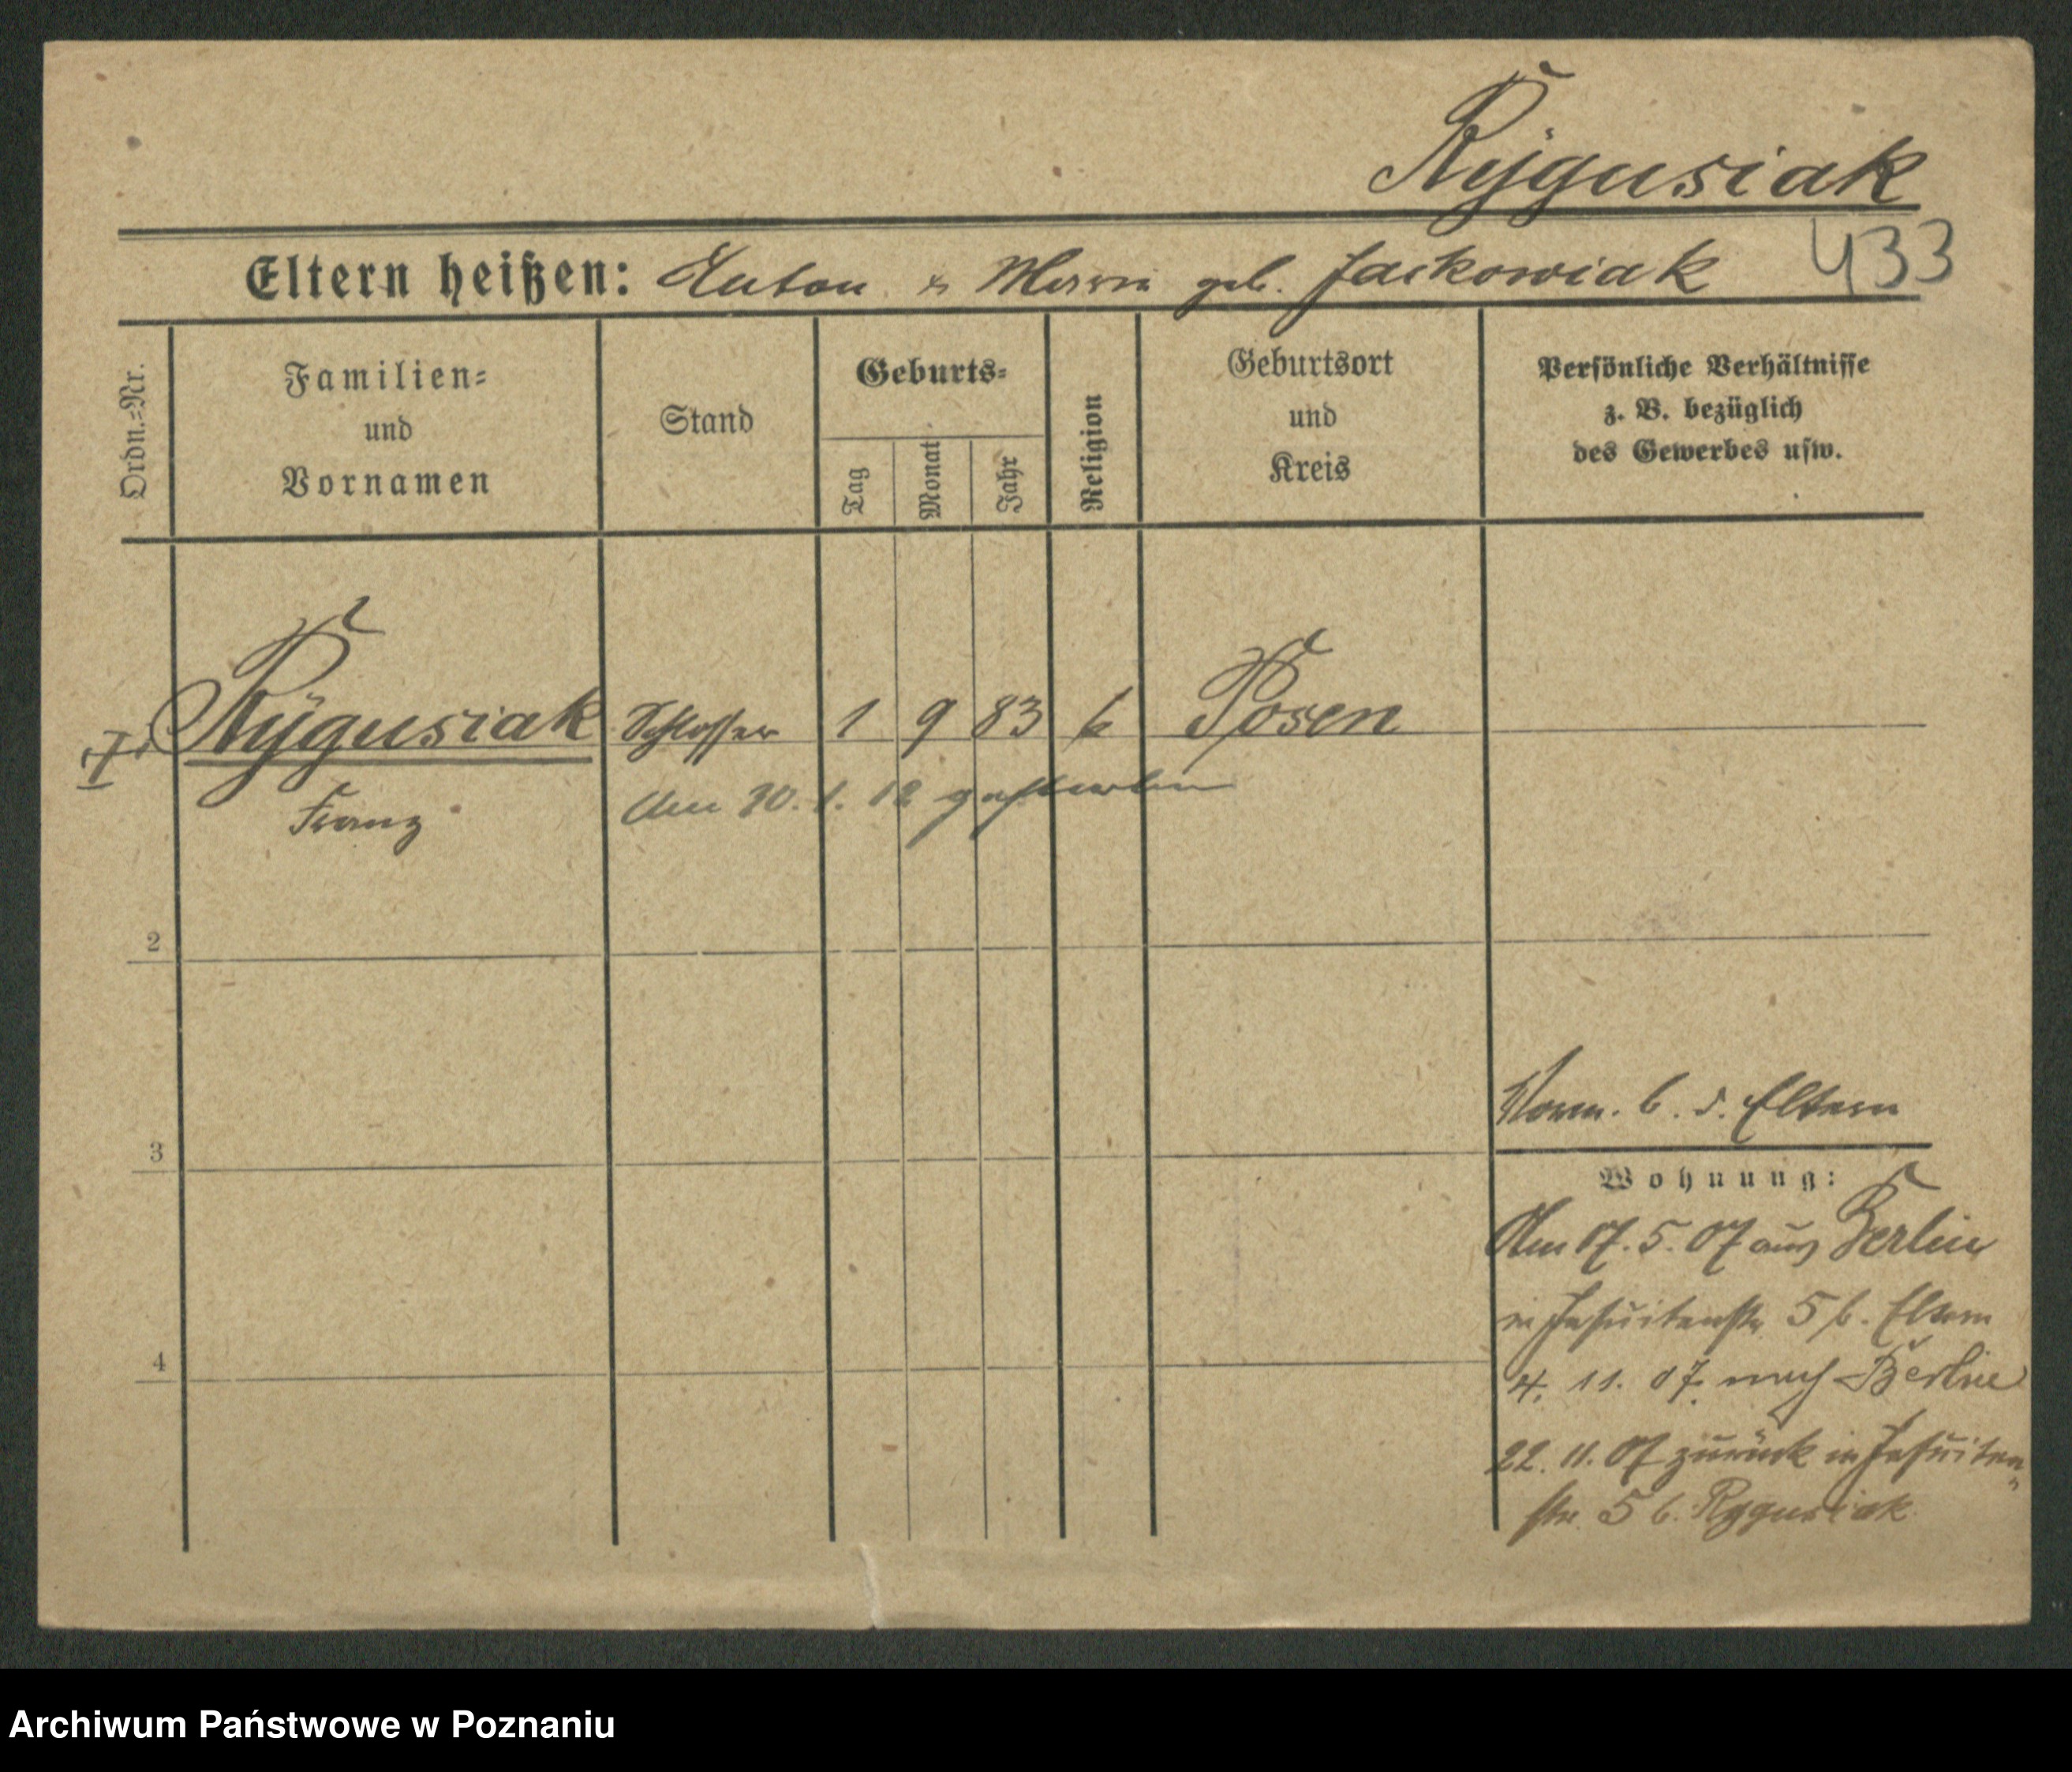 Rÿgusiak
Eltern heißen: Anton u Maria geb. Jackowiak 433
Ordn.=Nr.
Familien=
und
Vornamen
Stand
Geburts=
Tag
Monat
Jahr
Religion
Geburtsort
und
Kreis
Persönliche Verhältnisse
z. B. bezüglich
des Gewerbes usw.
Rÿgusiak Schlosser 1 9 83 k Posen
Franz
Am 30. 1. 12 gestorben
2
3
4
Vorm. b. d. Eltern
Wohnung:
Am 17. 5. 07 aus Berlin
in Jesuitenstr. 5 b. Eltern
4. 11. 07 nach Berlin
22. 11. 07 zurück in Jesuiten
str. 5 b. Rygusiak
Archiwum Państwowe w Poznaniu